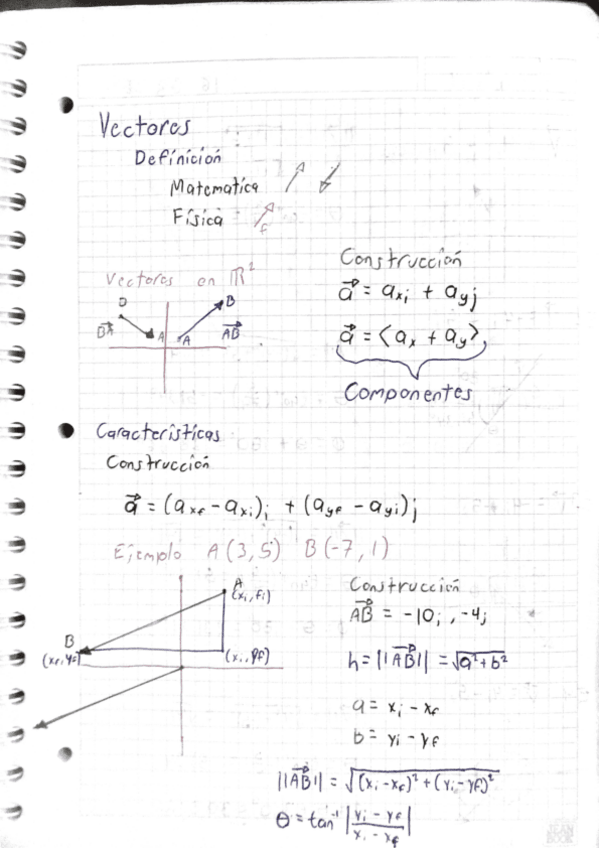 Vectores
Definición
Matematica
Física
F
Vectores en ℝ²
D
B⃗A⃗ A A B A⃗B⃗
Construcción
a⃗ = axi + ayj
a⃗ = <ax + ay>
Componentes
Características
Construcción
a⃗ = (axf - axi)i + (ayf - ayi)j
Ejemplo A(3,5) B(-7,1)
A
(xi, fi)
B
(xf, yf)
(xi, yf)
Construcción
AB⃗ = -10i, -4j
h = ||AB⃗|| = √a²+b²
a = xi - xf
b = yi - yf
||AB⃗|| = √(xi-xf)²+(yi-yf)²
θ = tan⁻¹ |yi - yf / xi - xf|